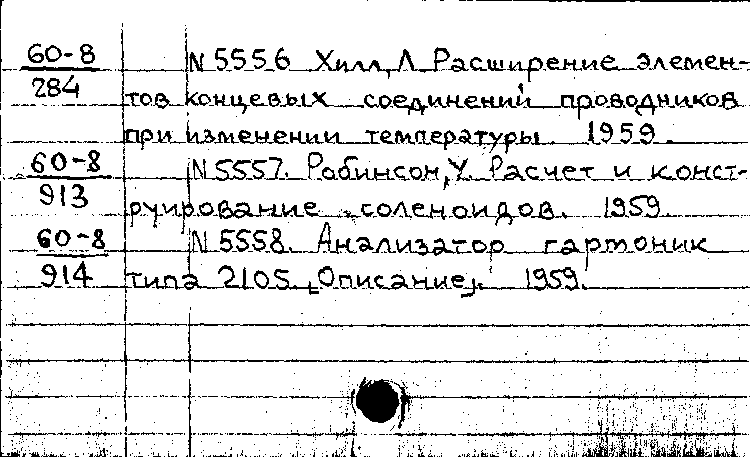 60-8 N 5556 Хилл, Л. Расширение элемен-
284 тов концевых соединений проводников
при изменении температуры. 1959.
60-8 N 5557. Робинсон, У. Расчет и конст-
913 руирование соленоидов. 1959.
60-8 N 5558. Анализатор гармоник
914 типа 2105. [Описание]. 1959.